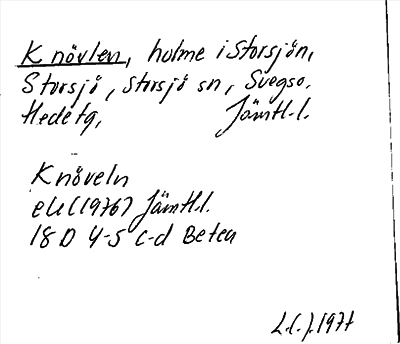 Knövlen, holme i Storsjön,
Storsjö, Storsjö sn, Svegso.
Hede tg, Jämtl.l.
Knöveln
ek (1976) Jämtl.l.
18 D 4-5 c-d Beten
L.L.J. 1977